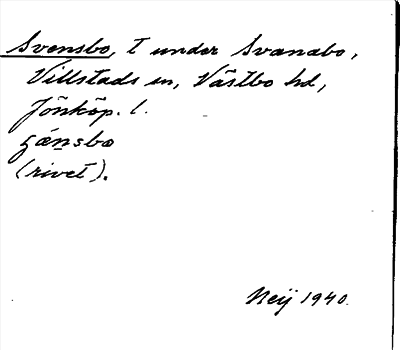 Svensbo, T under Svanabo,
Villstads sn, Västbo hd,
Jönköp. l.
(rivet).
Neij 1940.